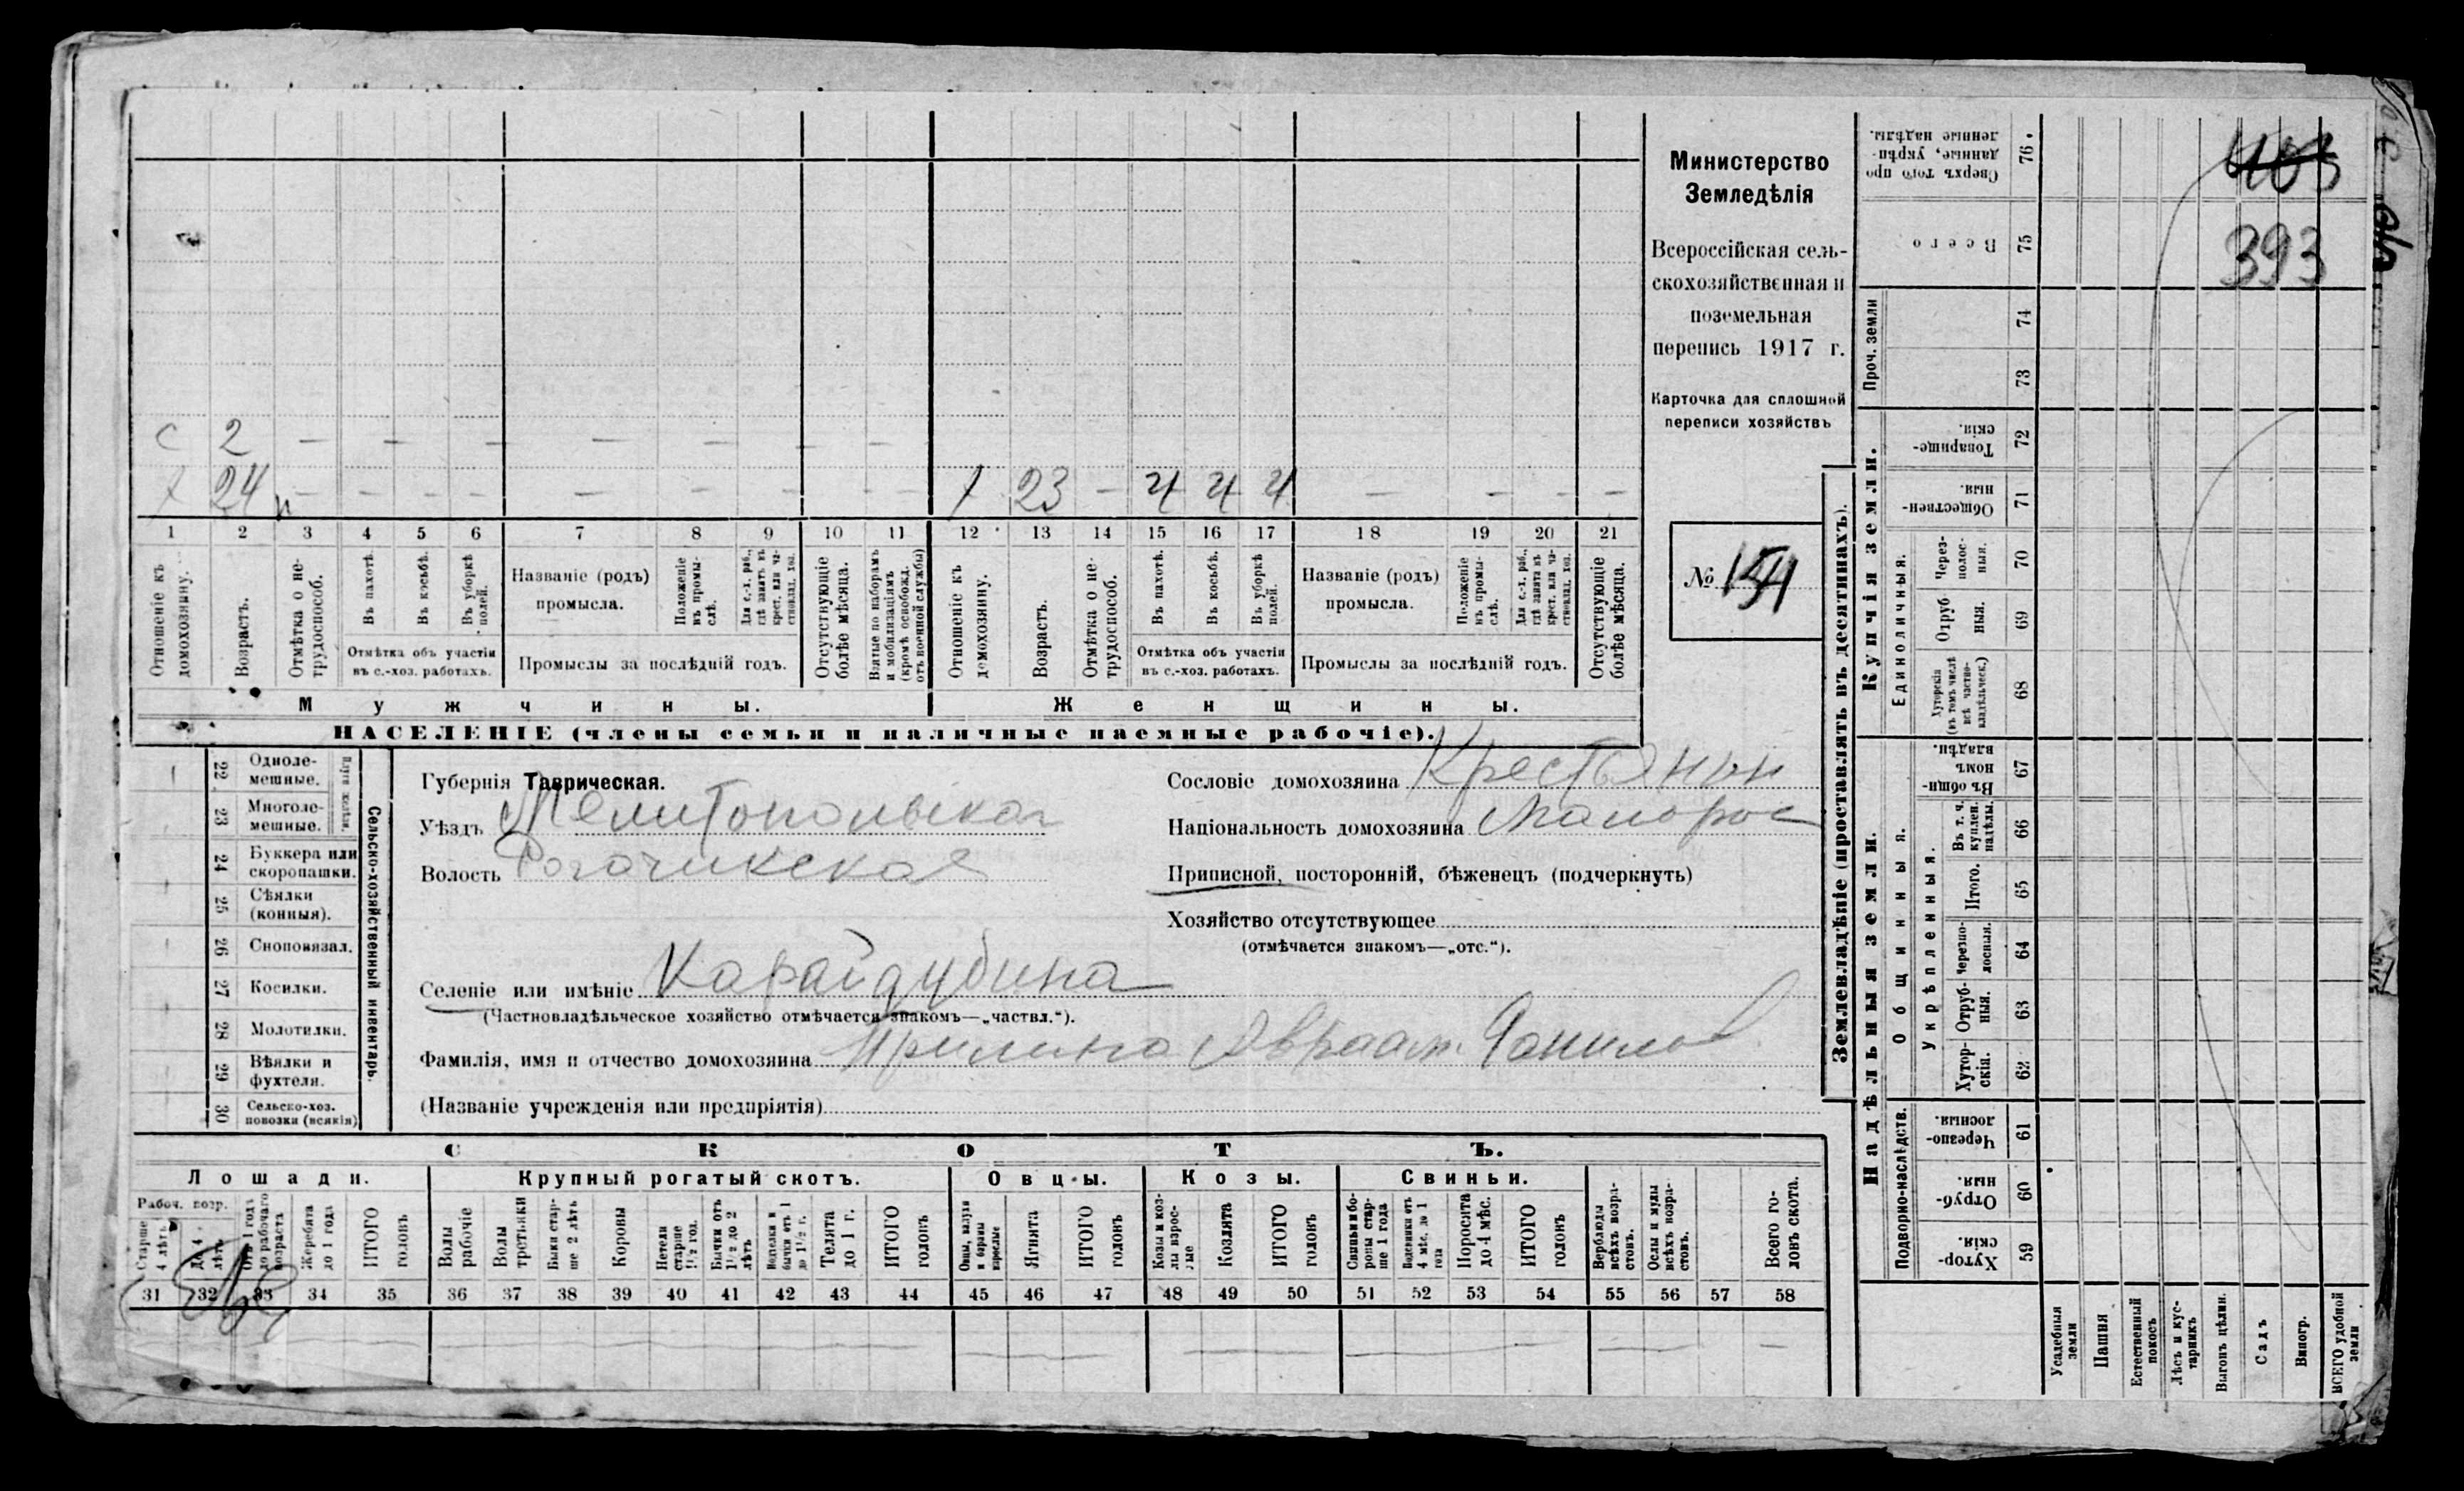 Министерство
Земледѣлія
Всероссійская сель-
скохозяйственная и
поземельная
перепись 1917 г.
Карточка для сплошной
переписи хозяйствъ
№ 154
403
393
С 2 — — — — — — — — —
24 — — — — — — — — — 1 23 — Ч Ч Ч — — — —
1 2 3 4 5 6 7 8 9 10 11 12 13 14 15 16 17 18 19 20 21
Отношеніе къ домохозяину.
Возрастъ.
Отмѣтка о не-трудоспособ.
Въ пахотѣ.
Въ косьбѣ.
Въ уборкѣ полей.
Отмѣтка объ участіи
въ с.-хоз. работахъ.
Названіе (родъ)
промысла.
Положеніе въ промы-слѣ.
Для с.-х. раб., гдѣ занятъ въ крест. или ча-стновлад. хоз.
Промыслы за послѣдній годъ.
Отсутствующіе болѣе мѣсяца.
Взятые по наборамъ и мобилизаціямъ (кромѣ освобожд. отъ военной службы)
Отношеніе къ домохозяину.
Возрастъ.
Отмѣтка о не-трудоспособ.
Въ пахотѣ.
Въ косьбѣ.
Въ уборкѣ полей.
Отмѣтка объ участіи
въ с.-хоз. работахъ.
Названіе (родъ)
промысла.
Положеніе въ промы-слѣ.
Для с.-х. раб., гдѣ занята въ крест. или ча-стновлад. хоз.
Промыслы за послѣдній годъ.
Отсутствующіе болѣе мѣсяца.
Мужчины. Женщины.
НАСЕЛЕНІЕ (члены семьи и наличные наемные рабочіе).
22 Одноле-мешные.
23 Многоле-мешные.
Плуги желѣзн.
24 Буккера или скоропашки.
25 Сѣялки (конныя).
26 Сноповязал.
27 Косилки.
28 Молотилки.
29 Вѣялки и фухтеля.
30 Сельско-хоз. повозки (всякія)
Сельско-хозяйственный инвентарь.
Губернія Таврическая.
Уѣздъ Мелитопольская
Волость Рогачикская
Сословіе домохозяина Крестьянин
Національность домохозяина Малорос
Приписной, посторонній, бѣженецъ (подчеркнуть)
Хозяйство отсутствующее
(отмѣчается знакомъ—„отс.“).
Селеніе или имѣніе Карайдубина
(Частновладѣльческое хозяйство отмѣчается знакомъ—„частвл.“).
Фамилія, имя и отчество домохозяина Авраам Данилов
(Названіе учрежденія или предпріятія)
СКОТЪ.
Лошади. Крупный рогатый скотъ. Овцы. Козы. Свиньи.
Рабоч. возр.
Старше 4 лѣтъ
До 4 лѣтъ
Отъ 1 года до рабочаго возраста
Жеребята до 1 года
ИТОГО головъ
Волы рабочіе
Волы третьяки
Быки стар-ше 2 лѣтъ
Коровы
Нетели старше 1½ год.
Бычки отъ 1½ до 2 лѣтъ
Телушки и бычки отъ 1 до 1½ г.
Телята до 1 г.
ИТОГО головъ
Овцы, валухи и бараны взрослые
Ягнята
ИТОГО головъ
Козы и коз-лы взрос-лые
Козлята
ИТОГО головъ
Свиньи и бо-ровы стар-ше 1 года
Подсвинки отъ 4 мѣс. до 1 года
Поросята до 4 мѣс.
ИТОГО головъ
Верблюды всѣхъ возра-стовъ.
Ослы и мулы всѣхъ возра-стовъ.
Всего го-ловъ скота.
31 32 33 34 35 36 37 38 39 40 41 42 43 44 45 46 47 48 49 50 51 52 53 54 55 56 57 58
Землевладѣніе (проставлять въ десятинахъ).
Надѣльныя земли. Купчія земли. Проч. земли
Подворно-наслѣдств.
Общинныя.
Укрѣпленныя.
Единоличныя.
Сверхъ того про данные, укрѣп-ленные надѣлы. 76
Всего 75
74
73
Товарище-скія. 72
Обществен-ныя. 71
Через-полос-ныя. 70
Отруб-ныя. 69
Хуторскія (въ томъ числѣ всѣ частно-владѣльческ.) 68
Въ общи-номъ владѣн. 67
Въ т. ч. куплен. надѣлы. 66
Итого. 65
Черезпо-лосныя. 64
Отруб-ныя. 63
Хутор-скія. 62
Черезпо-лосныя. 61
Отруб-ныя. 60
Хутор-скія. 59
Усадебныя земли
Пашня
Естественный покосъ
Лѣсъ и кус-тарникъ
Выгонъ цѣлин.
Садъ
Виногр.
ВСЕГО удобной земли